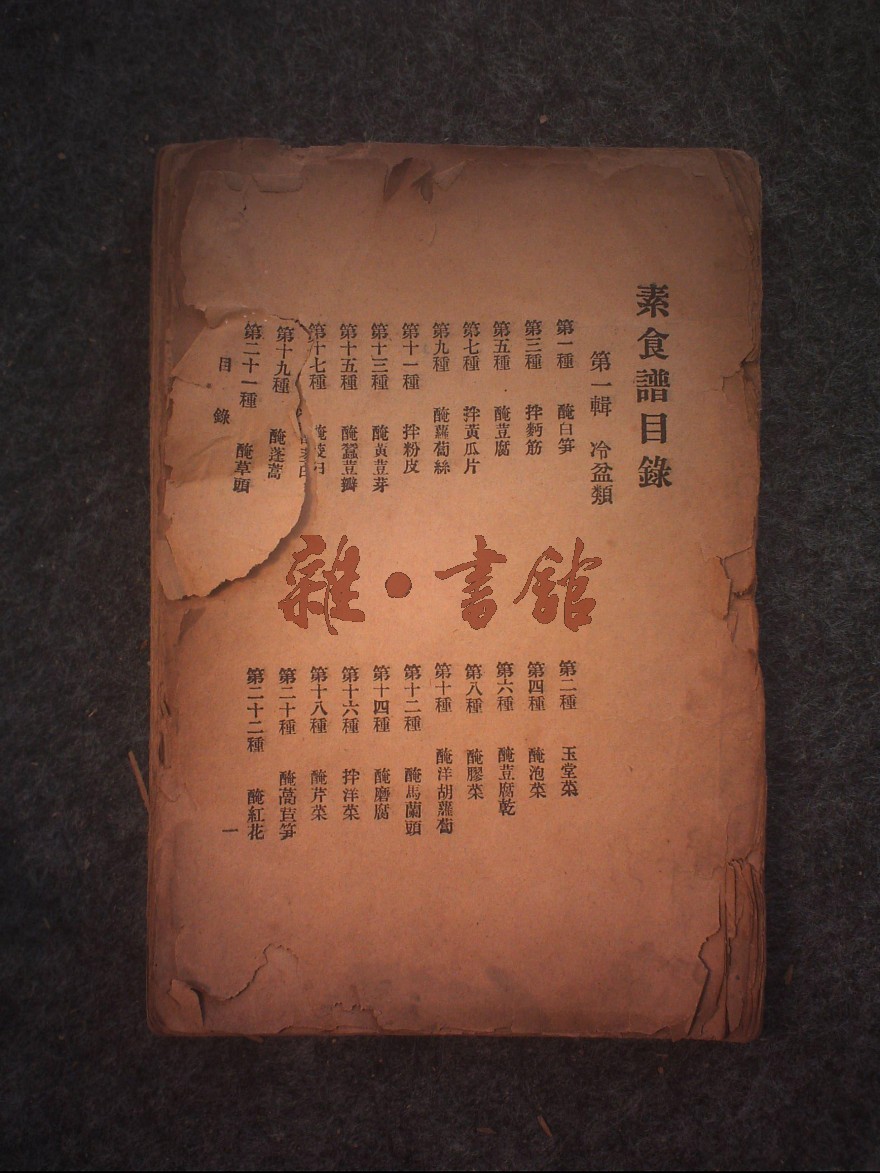 素食譜目錄
第一輯 冷盆類
第一種 醃白笋
第二種 玉堂菜
第三種 拌麪筋
第四種 醃泡菜
第五種 醃荳腐
第六種 醃荳腐乾
第七種 拌黃瓜片
第八種 醃膠菜
第九種 醃蘿蔔絲
第十種 醃洋胡蘿蔔
第十一種 拌粉皮
第十二種 醃馬蘭頭
第十三種 醃黃荳芽
第十四種 醃磨腐
第十五種 醃蠶荳瓣
第十六種 拌洋菜
第十七種
第十八種 醃芹菜
第十九種 醃蓬蒿
第二十種 醃萵苣笋
第二十一種 醃草頭
第二十二種 醃紅花
目錄
一
雜·書館